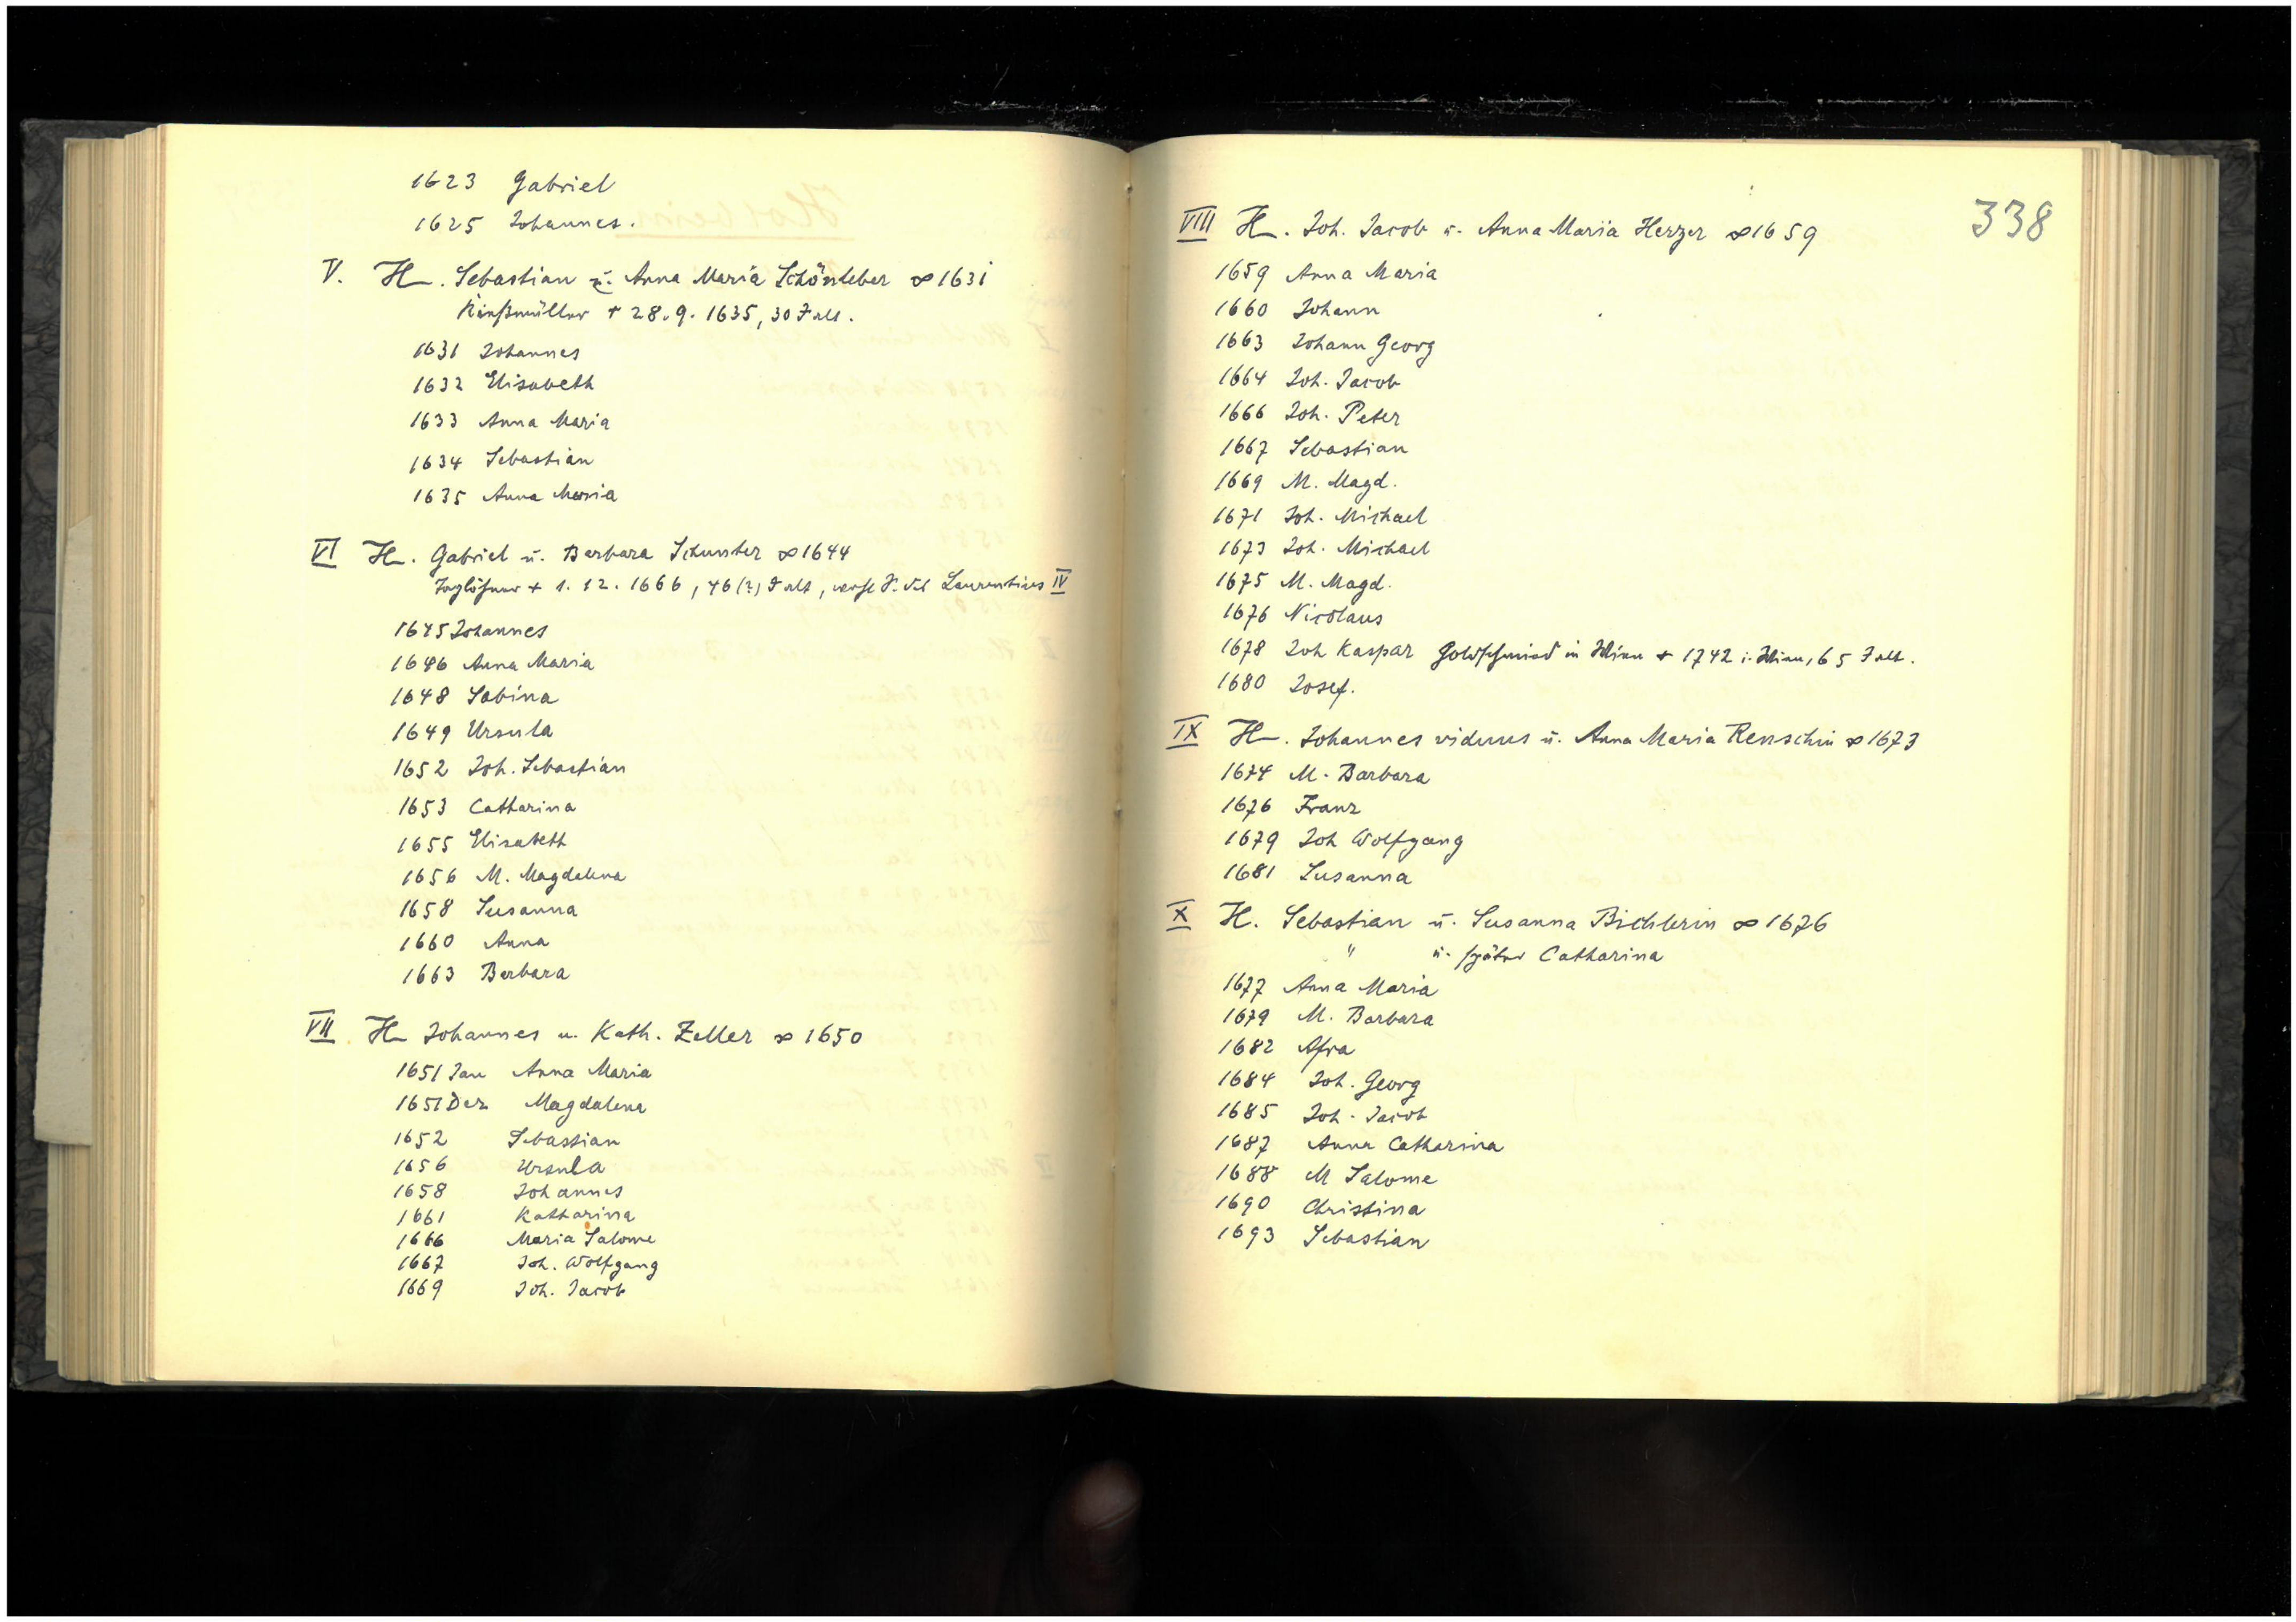 1623 Gabriel
1625 Johannes.
V. H. Sebastian u. Anna Maria Schönleber ∞ 1631
+ 28.9.1635, 30 J alt.
1631 Johannes
1632 Elisabeth
1633 Anna Maria
1634 Sebastian
1635 Anna Maria
VI H. Gabriel u. Barbara Schunter ∞ 1644
Taglöhner + 1.12.1666, 46(?) J alt, wohl S. des Laurentius IV
1645 Johannes
1646 Anna Maria
1648 Sabina
1649 Ursula
1652 Joh. Sebastian
1653 Catharina
1655 Elisabeth
1656 M. Magdalena
1658 Susanna
1660 Anna
1663 Barbara
VII H Johannes u. Kath. Zeller ∞ 1650
1651 Jan Anna Maria
1651 Dez Magdalena
1652 Sebastian
1656 Ursula
1658 Johannes
1661 Katharina
1666 Maria Salome
1667 Joh. Wolfgang
1669 Joh. Jacob
338
VIII H. Joh. Jacob u. Anna Maria Herzer ∞ 1659
1659 Anna Maria
1660 Johann
1663 Johann Georg
1664 Joh. Jacob
1666 Joh. Peter
1667 Sebastian
1669 M. Magd.
1671 Joh. Michael
1673 Joh. Michael
1675 M. Magd.
1676 Nicolaus
1678 Joh Kaspar Goldschmied in Wien + 1742 i. Wien, 65 J alt.
1680 Josef.
IX H. Johannes viduus u. Anna Maria Renschin ∞ 1673
1674 M. Barbara
1676 Franz
1679 Joh Wolfgang
1681 Susanna
X H. Sebastian u. Susanna Bichlerin ∞ 1676
" u. später Catharina
1677 Anna Maria
1679 M. Barbara
1682 Afra
1684 Joh. Georg
1685 Joh. Jacob
1687 Anna Catharina
1688 M Salome
1690 Christina
1693 Sebastian